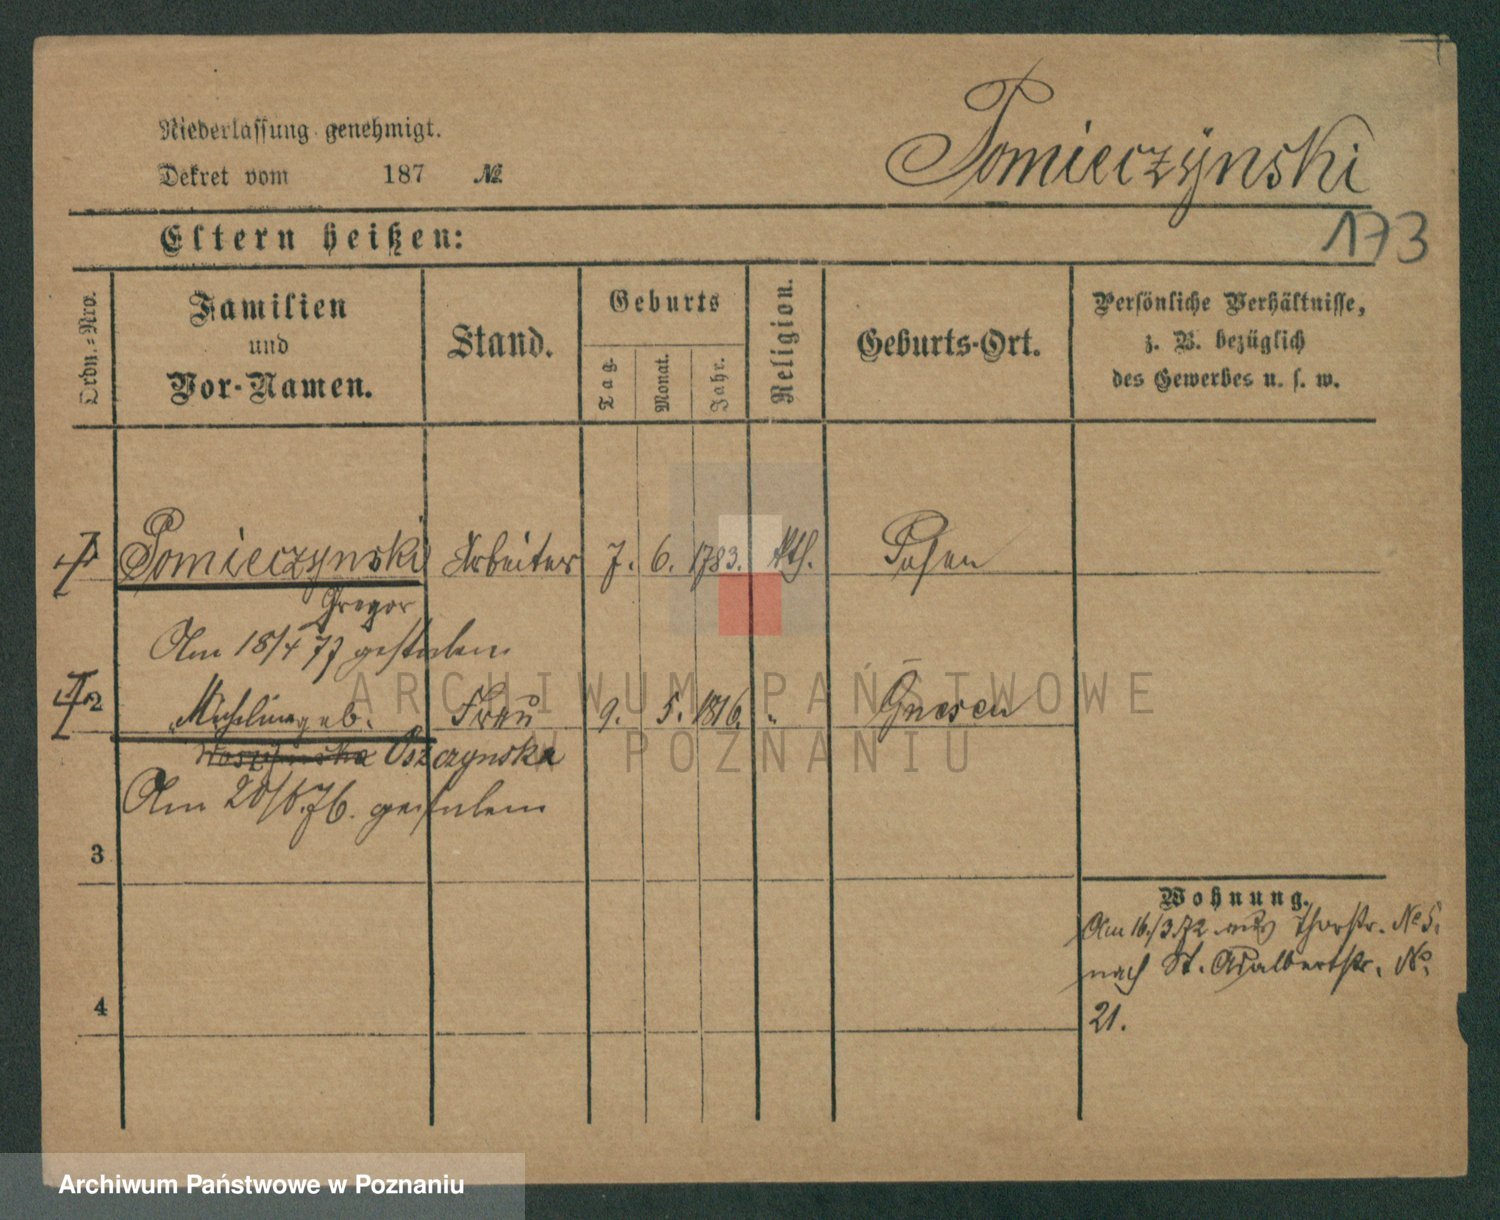 Niederlassung genehmigt.
Dekret vom 187 №
Pomieczÿnski
173
Eltern heißen:
Ordn.=Nro.
Familien
und
Vor-Namen.
Stand.
Geburts
Tag.
Monat.
Jahr.
Religion.
Geburts-Ort.
Persönliche Verhältnisse,
z. B. bezüglich
des Gewerbes u. s. w.
1 Pomieczynski Arbeiter 7. 6. 1783. kth. Posen
Gregor
Am 18/4 77 gestorben
2 geb. Frau 9. 5. 1816. " Gnesen
Oszczynska
Am 20/6.76. gestorben
3
4
Wohnung.
Am 16./3.72 aus Thorstr. No 5.
nach St. Adalbertstr. No.
21.
ARCHIWUM PAŃSTWOWE
W POZNANIU
Archiwum Państwowe w Poznaniu